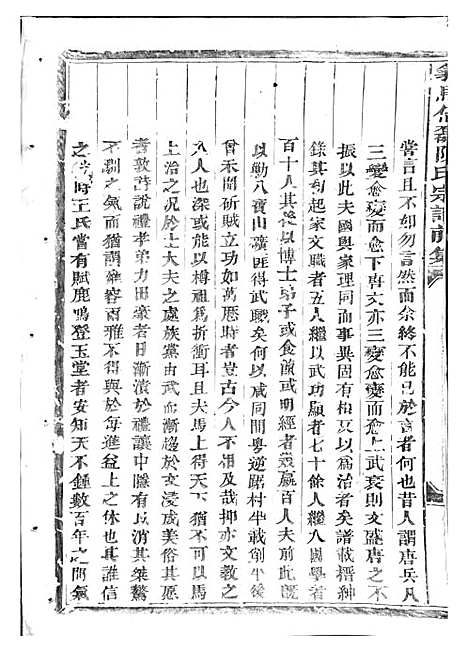 陳氏宗譜
嘗言且不知勿言然而余終不能已於言者何也昔人謂唐兵凡
三變愈變而愈下唐文亦三變愈變而愈上武衰則文盛唐之不
振以此夫國與家理同而事異固有相反以為治者矣譜載搢紳
錄其初起家文職者五人繼以武功顯者七十餘人繼入國學者
百十人其後以博士弟子或食餼或明經者叢贏百人夫前此既
以勒八寶山礦匪得武職矣何以咸同間粵逆踞村半載創平後
曾未聞斫賊立功如萬歷時者豈古今人不相及哉抑亦文教之
入人深耳從可以樽俎為折衝耳且夫馬上得天下猶不可以馬
上治之況於士大夫之處族黨由武而漸趨於文浸成美俗其愿
者敦詩說禮孝弟力田豪者日漸漬於禮讓中隱有以消其桀驁
不馴之氣而猶謂雍容而雅不得與於每進益上之休也其誰信
之 時王氏嘗有賦鹿鳴登玉堂者安知天不鍾數百年之間氣